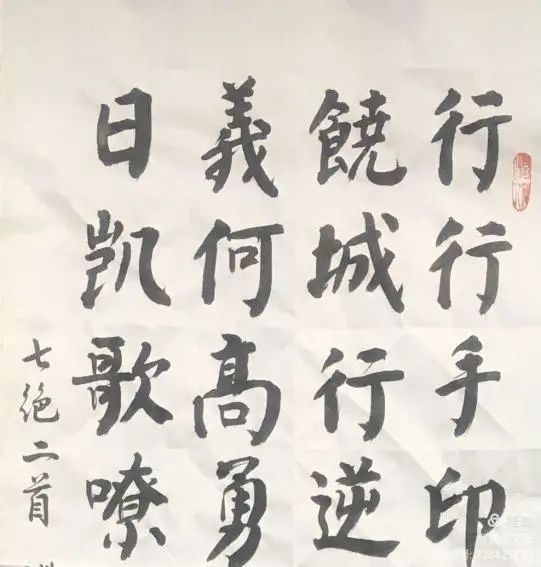 行行手印
饒城行逆
義何高勇
日凱歌嘹
七绝二首